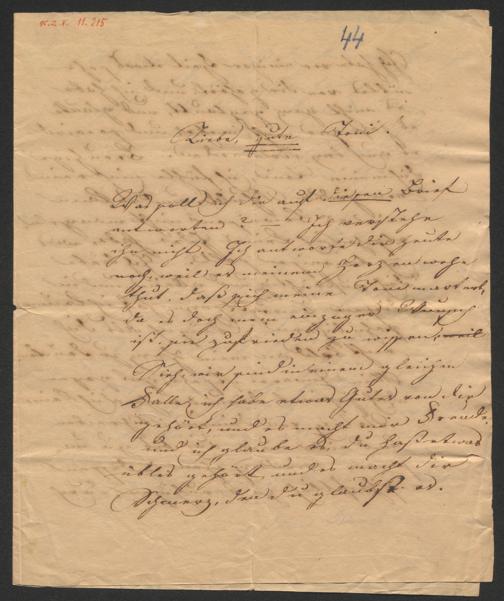 44
Liebe, gute Toni!
Was soll ich dir auf diesen Brief
antworten? — Ich verstehe
ihn nicht. Ich antworte dir heute
noch, weil es meinem Herzen wehe
thut, daß sich meine Toni martert,
da es doch mein einziger Wunsch
ist, sie zufrieden zu wissen, weil
Sieh, wir sind in einem gleichen
Falle, ich habe etwas Gutes von dir
gehört, und es macht mir Freude,
und ich glaube es, du hast etwas
übles gehört, und es macht dir
Schmerz, den du glaubst es.